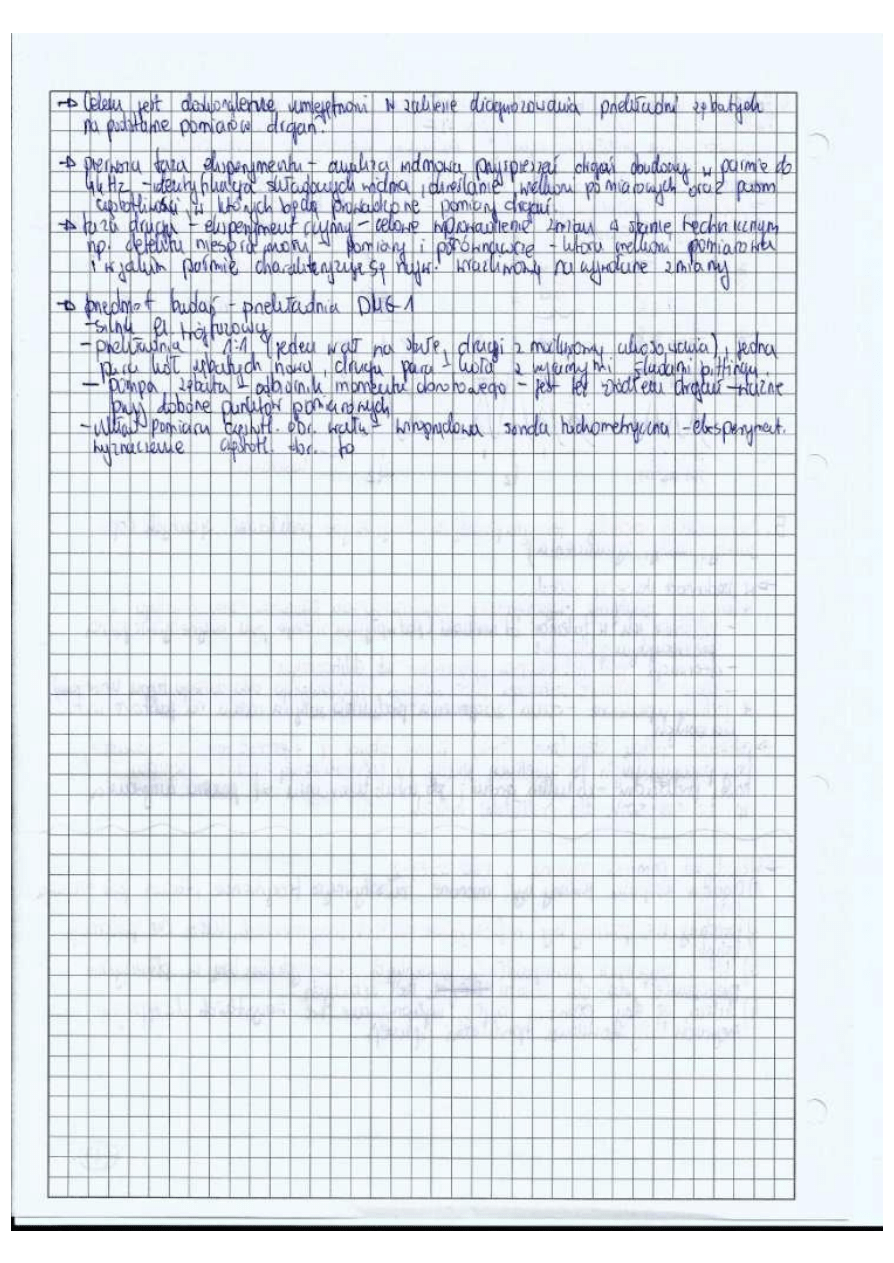 → Celem jest doskonalenie umiejętności w zakresie diagnozowania przekładni zębatych
na podstawie pomiarów drgań.
→ pierwsza faza eksperymentu - analiza widmowa przyspieszeń drgań obudowy w paśmie do
Hz - identyfikacja składowych widma, określanie wielkości pomiarowych oraz pasm
częstotliwości, w których będą prowadzone pomiary drgań.
→ faza druga - eksperyment czynny - celowe wprowadzenie zmian w stanie technicznym
np. defektu niesprawności - pomiary i porównawcze - która wielkość pomiarowa
i w jakim paśmie charakteryzuje się najw. wrażliwością na wywołane zmiany
→ przedmiot badań - przekładnia
- silnik el. trójfazowy
- przekładnia 1:1 (jeden wał na stałe, drugi z możliwością ), jedna
para kół zębatych nowa, druga para - koła z wyraźnymi śladami pittingu.
- pompa zębata - odbiornik momentu obrotowego - jest też źródłem drgań - ważne
przy doborze punktów pomiarowych
- układ pomiaru częstotl. obr. wału - sonda tachometryczna - eksperyment.
wyznaczenie częstotl. obr. fo